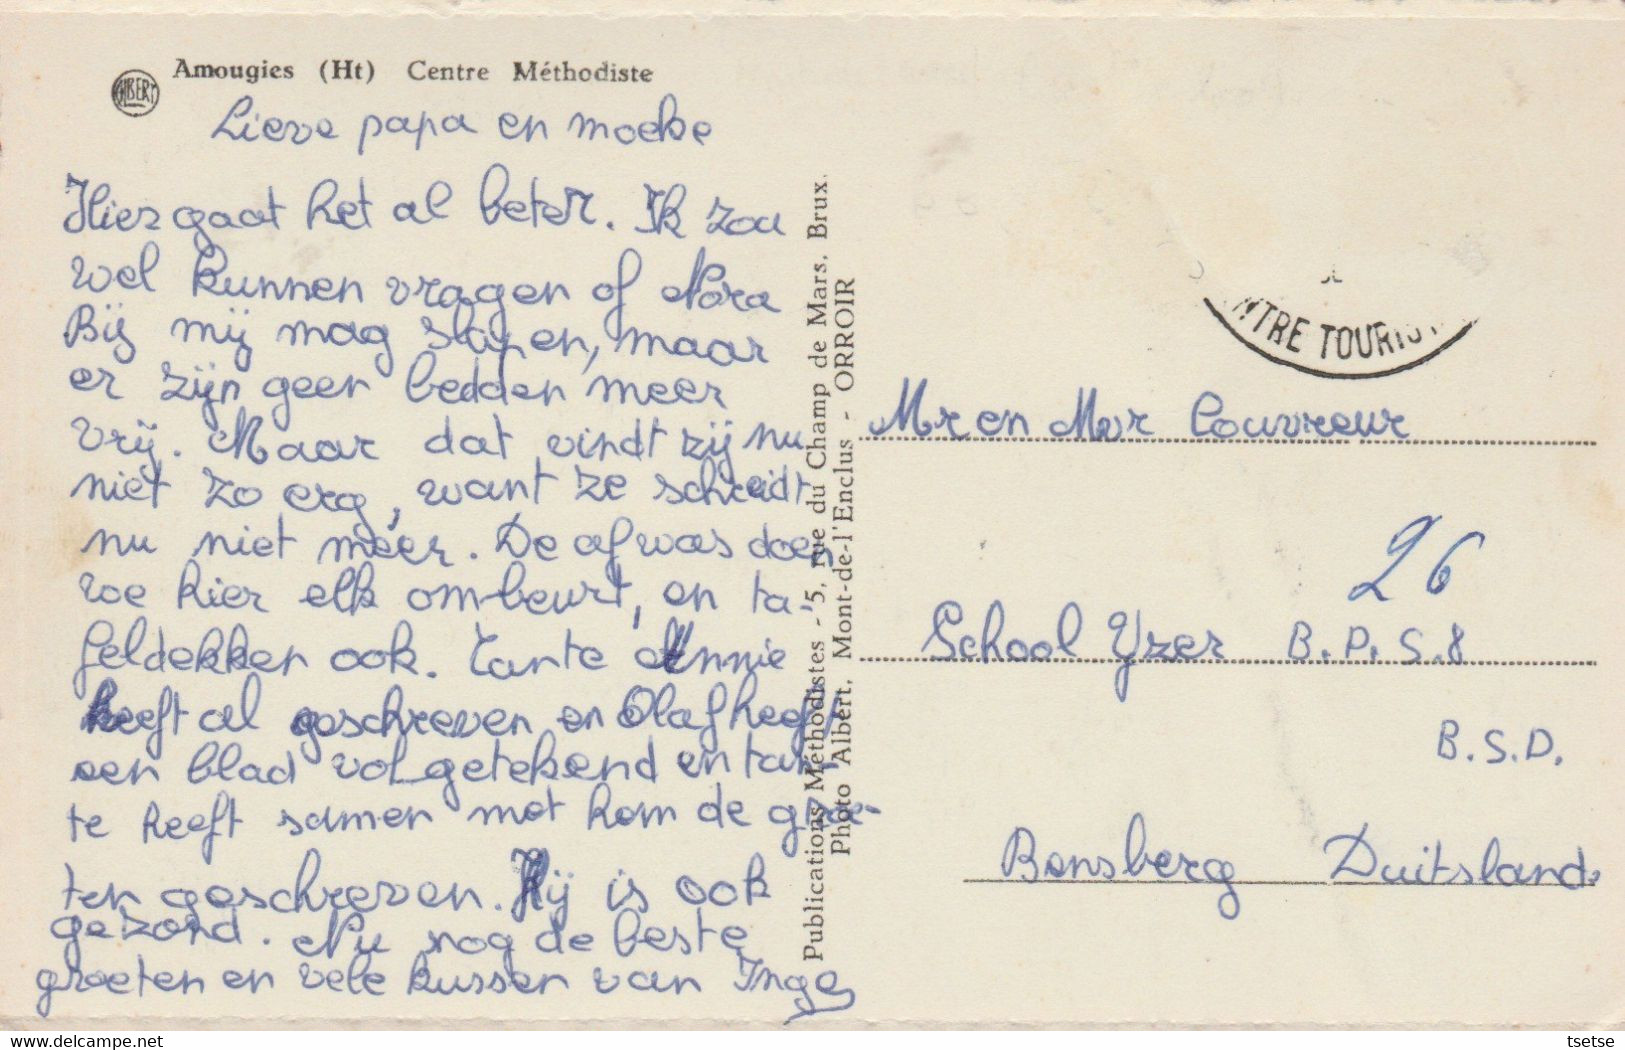 Amougies (Ht) Centre Méthodiste
ALBERT
Lieve papa en moeke
Hier gaat het al beter. Ik zou
wel kunnen vragen of Nora
Bij mij mag slapen, maar
er zijn geen bedden meer
vrij. Maar dat vindt zij nu
niet zo erg, want ze schreidt
nu niet meer. De afwas doen
we hier elk om beurt, en ta-
feldekken ook. Tante Annie
heeft al geschreven en Olaf heeft
een blad vol getekend en tan-
te heeft samen met hem de groe-
ten geschreven. Hij is ook
gezond. Nu nog de beste
groeten en vele kussen van Inge
Publications Méthodistes - 5, rue du Champ de Mars, Brux.
Photo Albert, Mont-de-l'Enclus - ORROIR
NTRE TOURIS
Mr en Mvr Couvreur
26
School Yzer B.P.S.8
B.S.D.
Bensberg Duitsland.
delcampe.net
tsetse